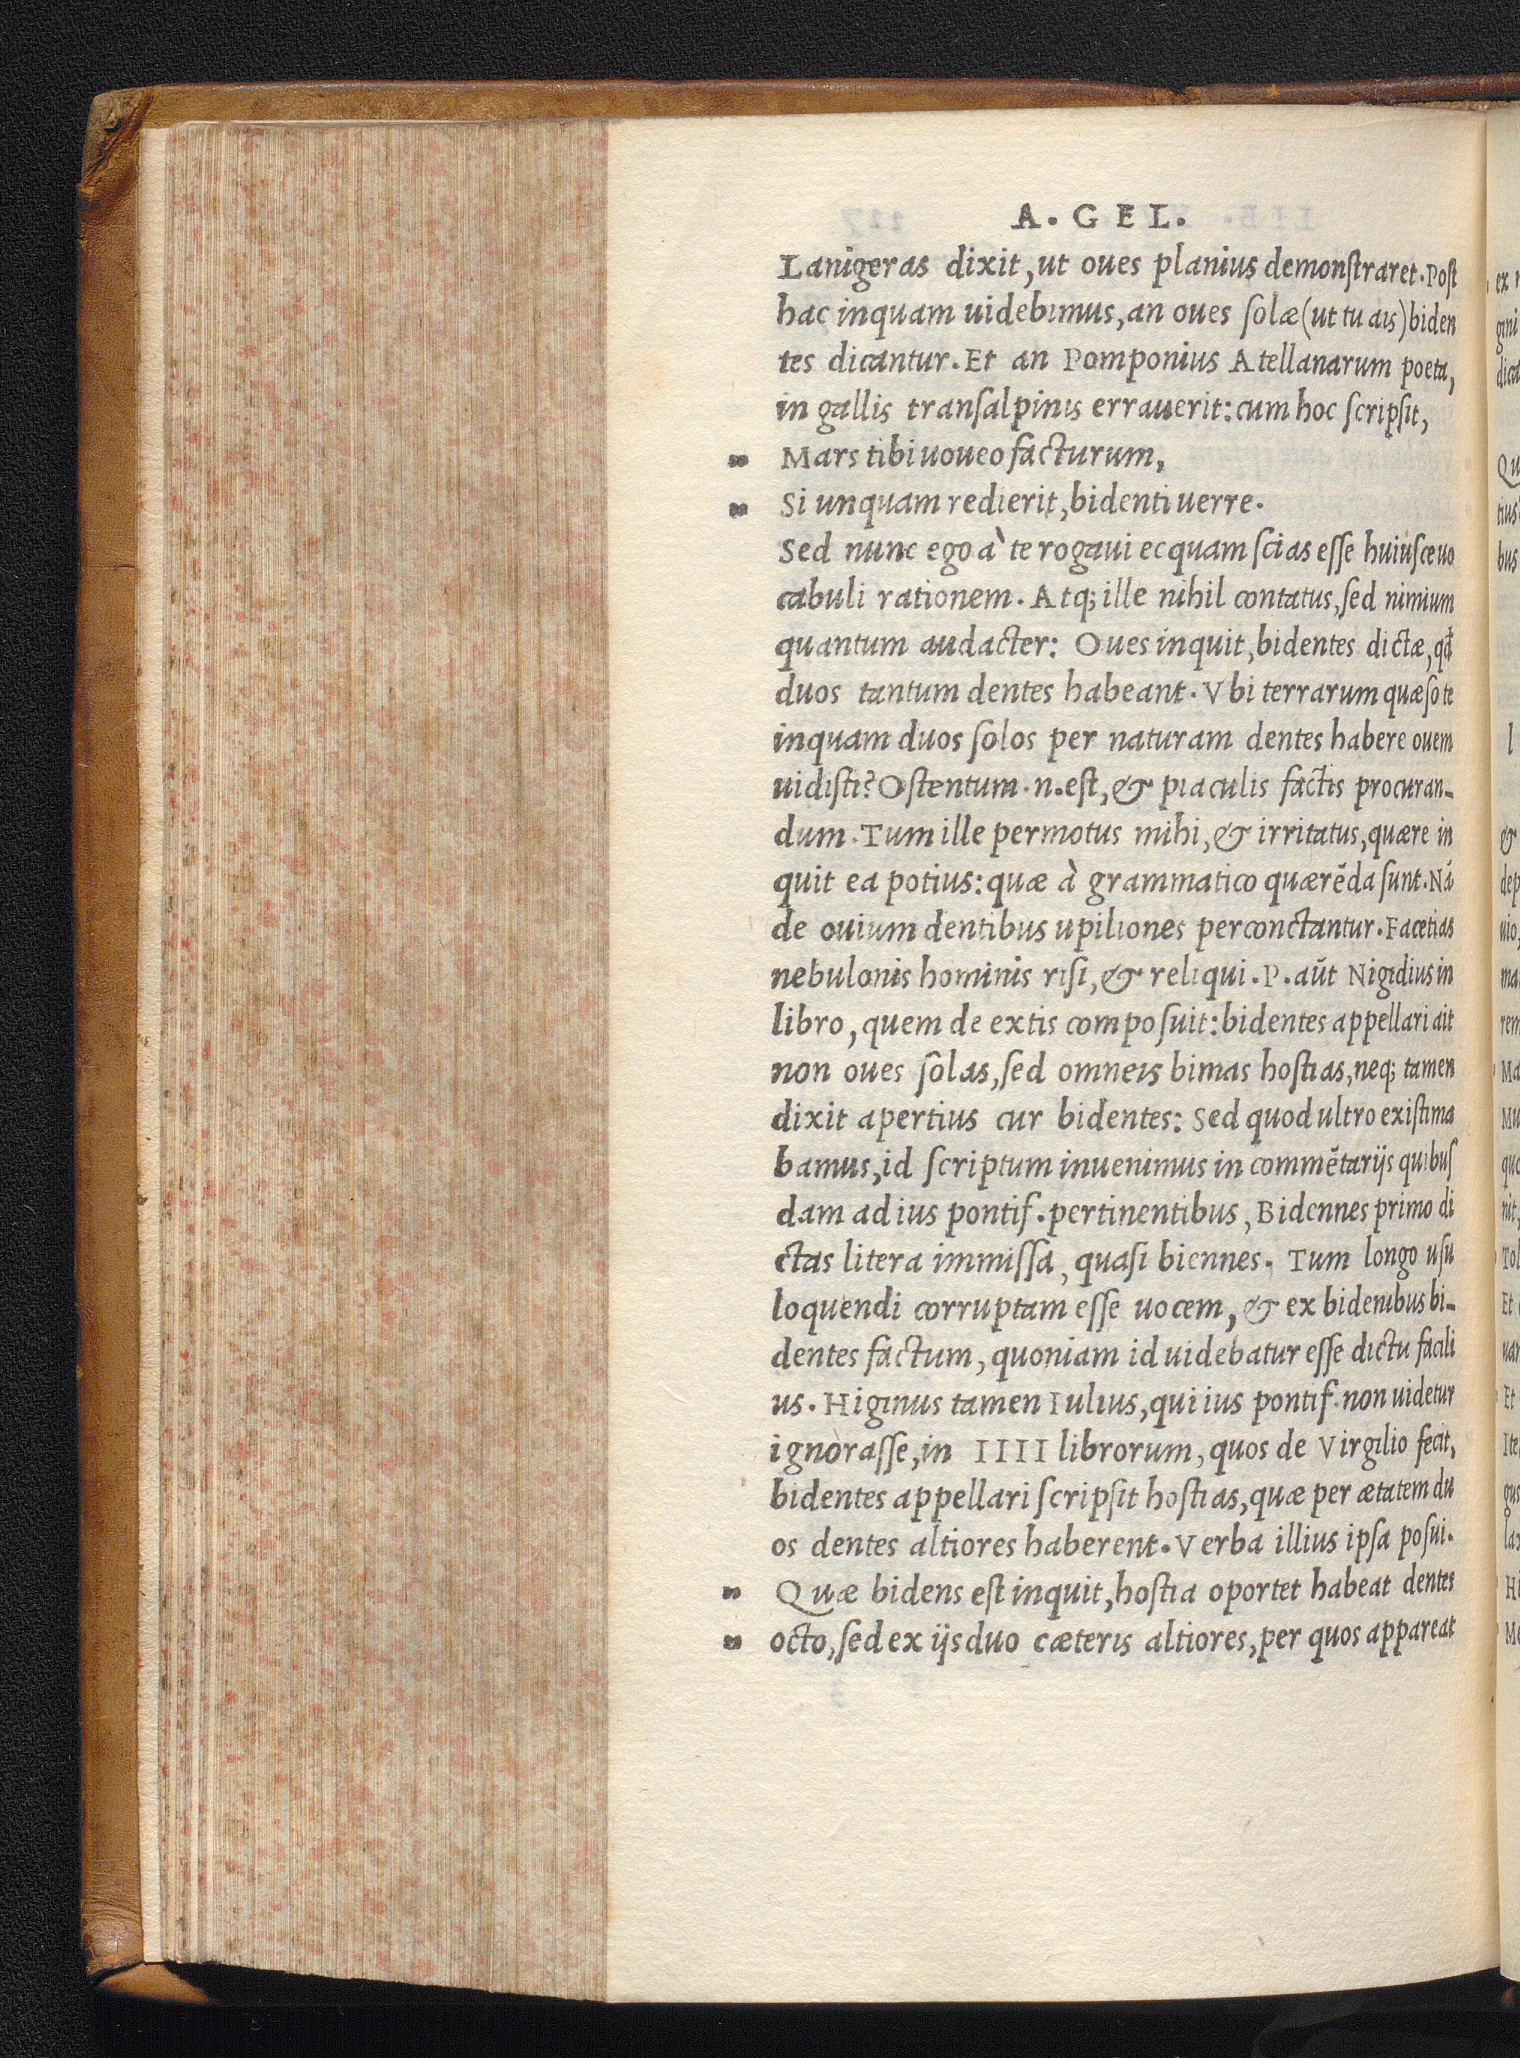 A. GEL.
Lanigeras dixit, ut oues planius demonſtraret. Poſt
hac inquam uidebimus, an oues ſolæ (ut tu ais) biden
tes dicantur. Et an Pomponius Atellanarum poeta,
in gallis tranſalpinis errauerit: cum hoc ſcripſit,
„ Mars tibi uoueo facturum,
„ Si unquam redierit, bidenti uerre.
Sed nunc ego à te rogaui ecquam ſcias eſſe huiuſce uo
cabuli rationem. Atq; ille nihil contatus, ſed nimium
quantum audacter: Oues inquit, bidentes dictæ, qđ
duos tantum dentes habeant. Vbi terrarum quæſo te
inquam duos ſolos per naturam dentes habere ouem
uidiſti? Oſtentum .n. eſt, & piaculis factis procuran-
dum. Tum ille permotus mihi, & irritatus, quære in
quit ea potius: quæ à grammatico quærēda ſunt. Nā
de ouium dentibus upiliones perconctantur. Facetias
nebulonis hominis riſi, & reliqui. P. aūt Nigidius in
libro, quem de extis compoſuit: bidentes appellari ait
non oues ſôlas, ſed omneis bimas hoſtias, neq; tamen
dixit apertius cur bidentes: Sed quod ultro exiſtima
bamus, id ſcriptum inuenimus in commētarijs quibuſ
dam ad ius pontif. pertinentibus, Bidennes primo di
ctas litera immiſſa, quaſi biennes. Tum longo uſu
loquendi corruptam eſſe uocem, & ex bidenibus bi-
dentes factum, quoniam id uidebatur eſſe dictu facili
us. Higinus tamen Iulius, qui ius pontif. non uidetur
ignoraſſe, in IIII librorum, quos de Virgilio fecit,
bidentes appellari ſcripſit hoſtias, quæ per ætatem du
os dentes altiores haberent. Verba illius ipſa poſui.
„ Quæ bidens eſt inquit, hoſtia oportet habeat dentes
„ octo, ſed ex ijs duo cæteris altiores, per quos appareat